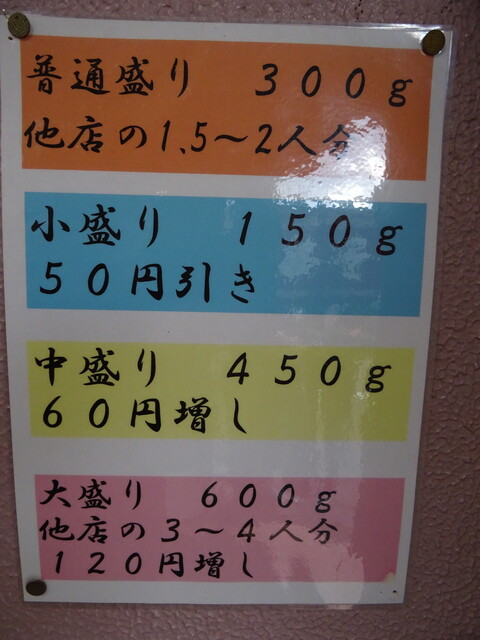 普通盛り　３００ｇ
他店の1.5～2人分
小盛り　１５０ｇ
５０円引き
中盛り　４５０ｇ
６０円増し
大盛り　６００ｇ
他店の３～４人分
１２０円増し